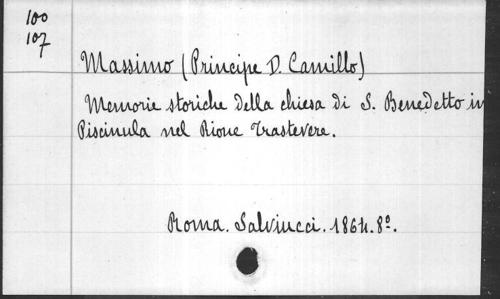 100
107
Massimo (Principe D. Camillo)
Memorie storiche della chiesa di S. Benedetto in
Piscinula nel Rione Trastevere.
Roma. Salviucci. 1864. 8º.